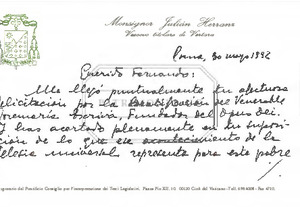 Monseñor Julián Herranz
Vescovo titolare di Vertara
Roma, 30 mayo 1992
Querido Fernando:
Me llegó puntualmente tu afectuosa
felicitación por la Beatificación del Venerable
Josemaría Escrivá, Fundador del Opus Dei.
Y has acertado plenamente en tu suposi
ción de lo que ese acontecimiento de la
Iglesia universal representa para este pobre
Segretario del Pontificio Consiglio per l'Interpretazione dei Testi Legislativi. Piazza Pio XII, 10 00120 Città del Vaticano - Tel.